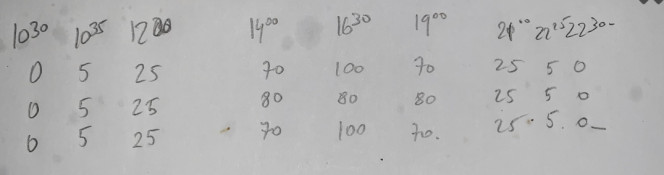 10 30 10 35 12 00 14 00 16 30 19 00 21 00 22 15 22 30-
0 5 25 70 100 70 25 5 0
0 5 25 80 80 80 25 5 0
0 5 25 70 100 70. 25. 5. 0-